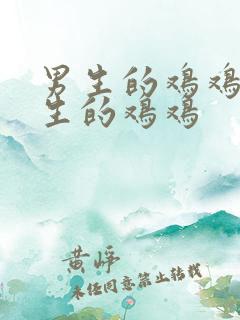 男生的鸡鸡
生的鸡鸡
黄峥
未经同意禁止转载